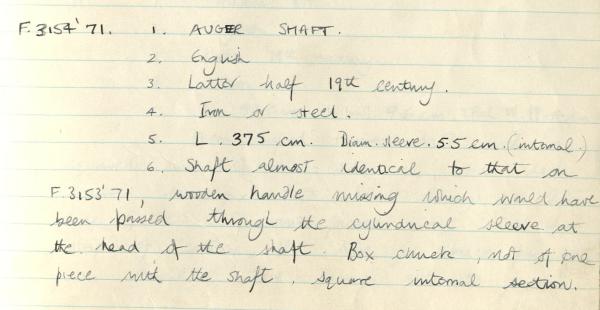 F.3154'71. 1. AUGER SHAFT.
2. English
3. Latter half 19th century.
4. Iron or steel.
5. L. 375 cm. Diam. sleeve. 5.5 cm. (internal.)
6. Shaft almost identical to that on
F.3153'71, wooden handle missing which would have
been passed through the cylindrical sleeve at
the head of the shaft. Box chuck, not of one
piece with the shaft, square internal section.